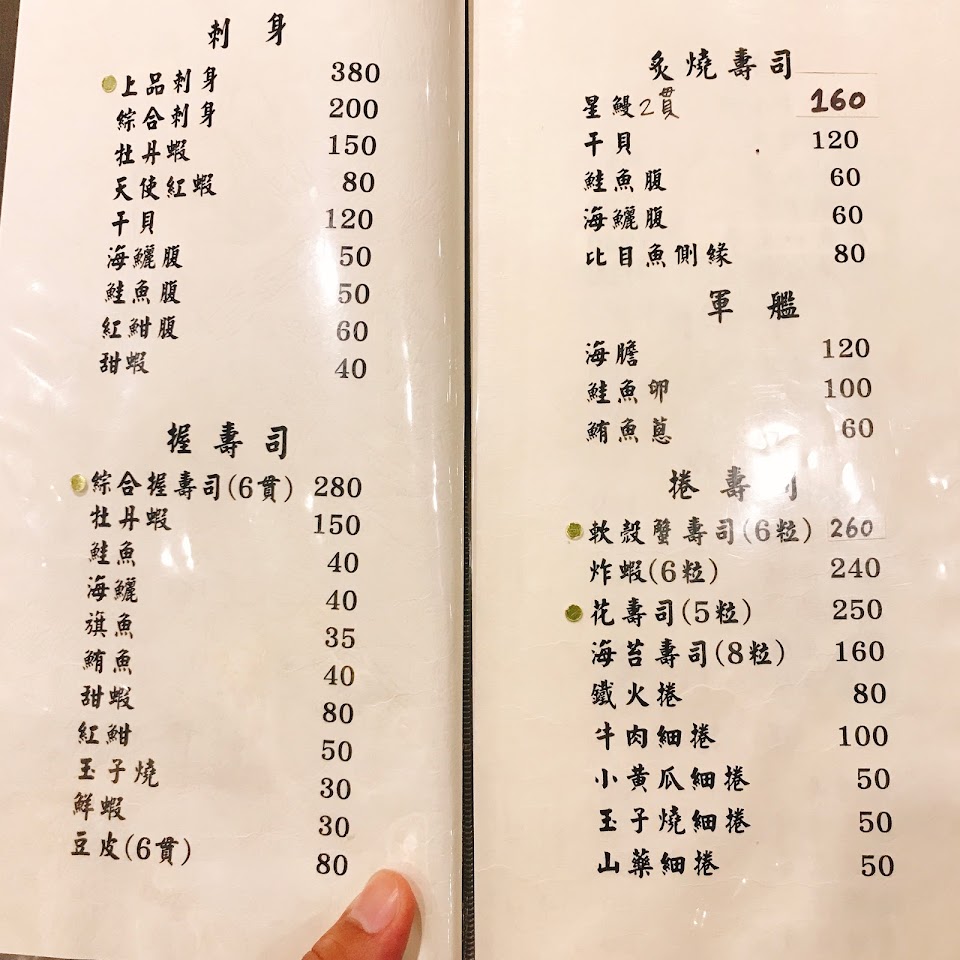 刺身
上品刺身 380
綜合刺身 200
牡丹蝦 150
天使紅蝦 80
干貝 120
海鱺腹 50
鮭魚腹 50
紅魽腹 60
甜蝦 40
握壽司
綜合握壽司(6貫) 280
牡丹蝦 150
鮭魚 40
海鱺 40
旗魚 35
鮪魚 40
甜蝦 80
紅魽 50
玉子燒 30
鮮蝦 30
豆皮(6貫) 80
炙燒壽司
星鰻2貫 160
干貝 120
鮭魚腹 60
海鱺腹 60
比目魚側緣 80
軍艦
海膽 120
鮭魚卵 100
鮪魚蔥 60
捲壽司
軟殼蟹壽司(6粒) 260
炸蝦(6粒) 240
花壽司(5粒) 250
海苔壽司(8粒) 160
鐵火捲 80
牛肉細捲 100
小黃瓜細捲 50
玉子燒細捲 50
山藥細捲 50